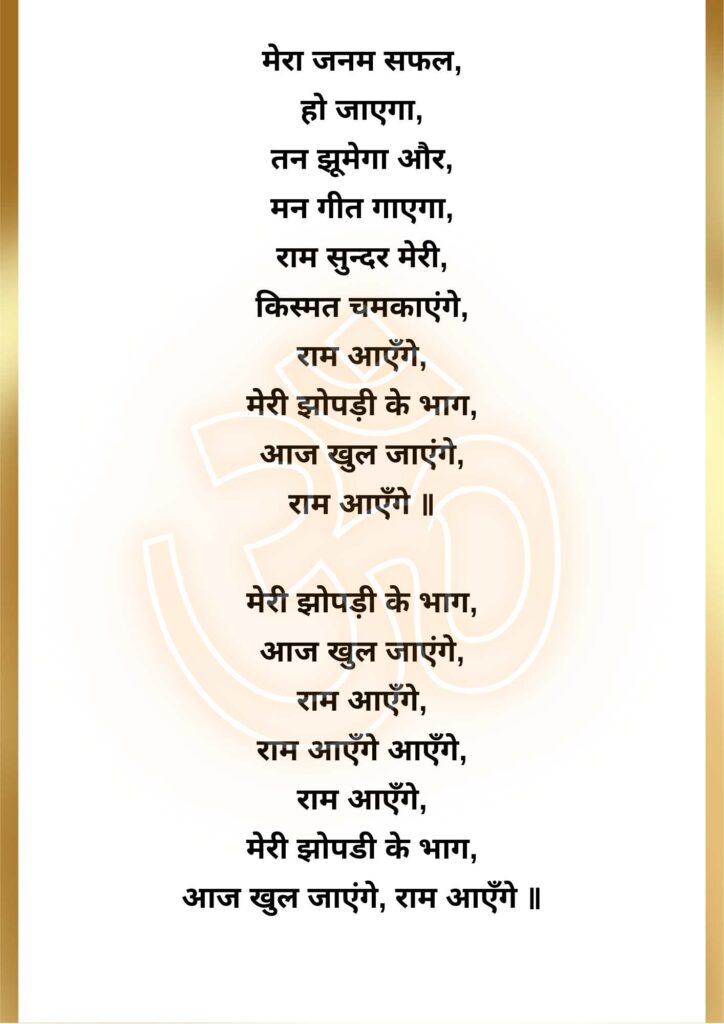 मेरा जनम सफल,
हो जाएगा,
तन झूमेगा और,
मन गीत गाएगा,
राम सुन्दर मेरी,
किस्मत चमकाएंगे,
राम आएँगे,
मेरी झोपड़ी के भाग,
आज खुल जाएंगे,
राम आएँगे ॥
मेरी झोपड़ी के भाग,
आज खुल जाएंगे,
राम आएँगे,
राम आएँगे आएँगे,
राम आएँगे,
मेरी झोपडी के भाग,
आज खुल जाएंगे, राम आएँगे ॥
ॐ